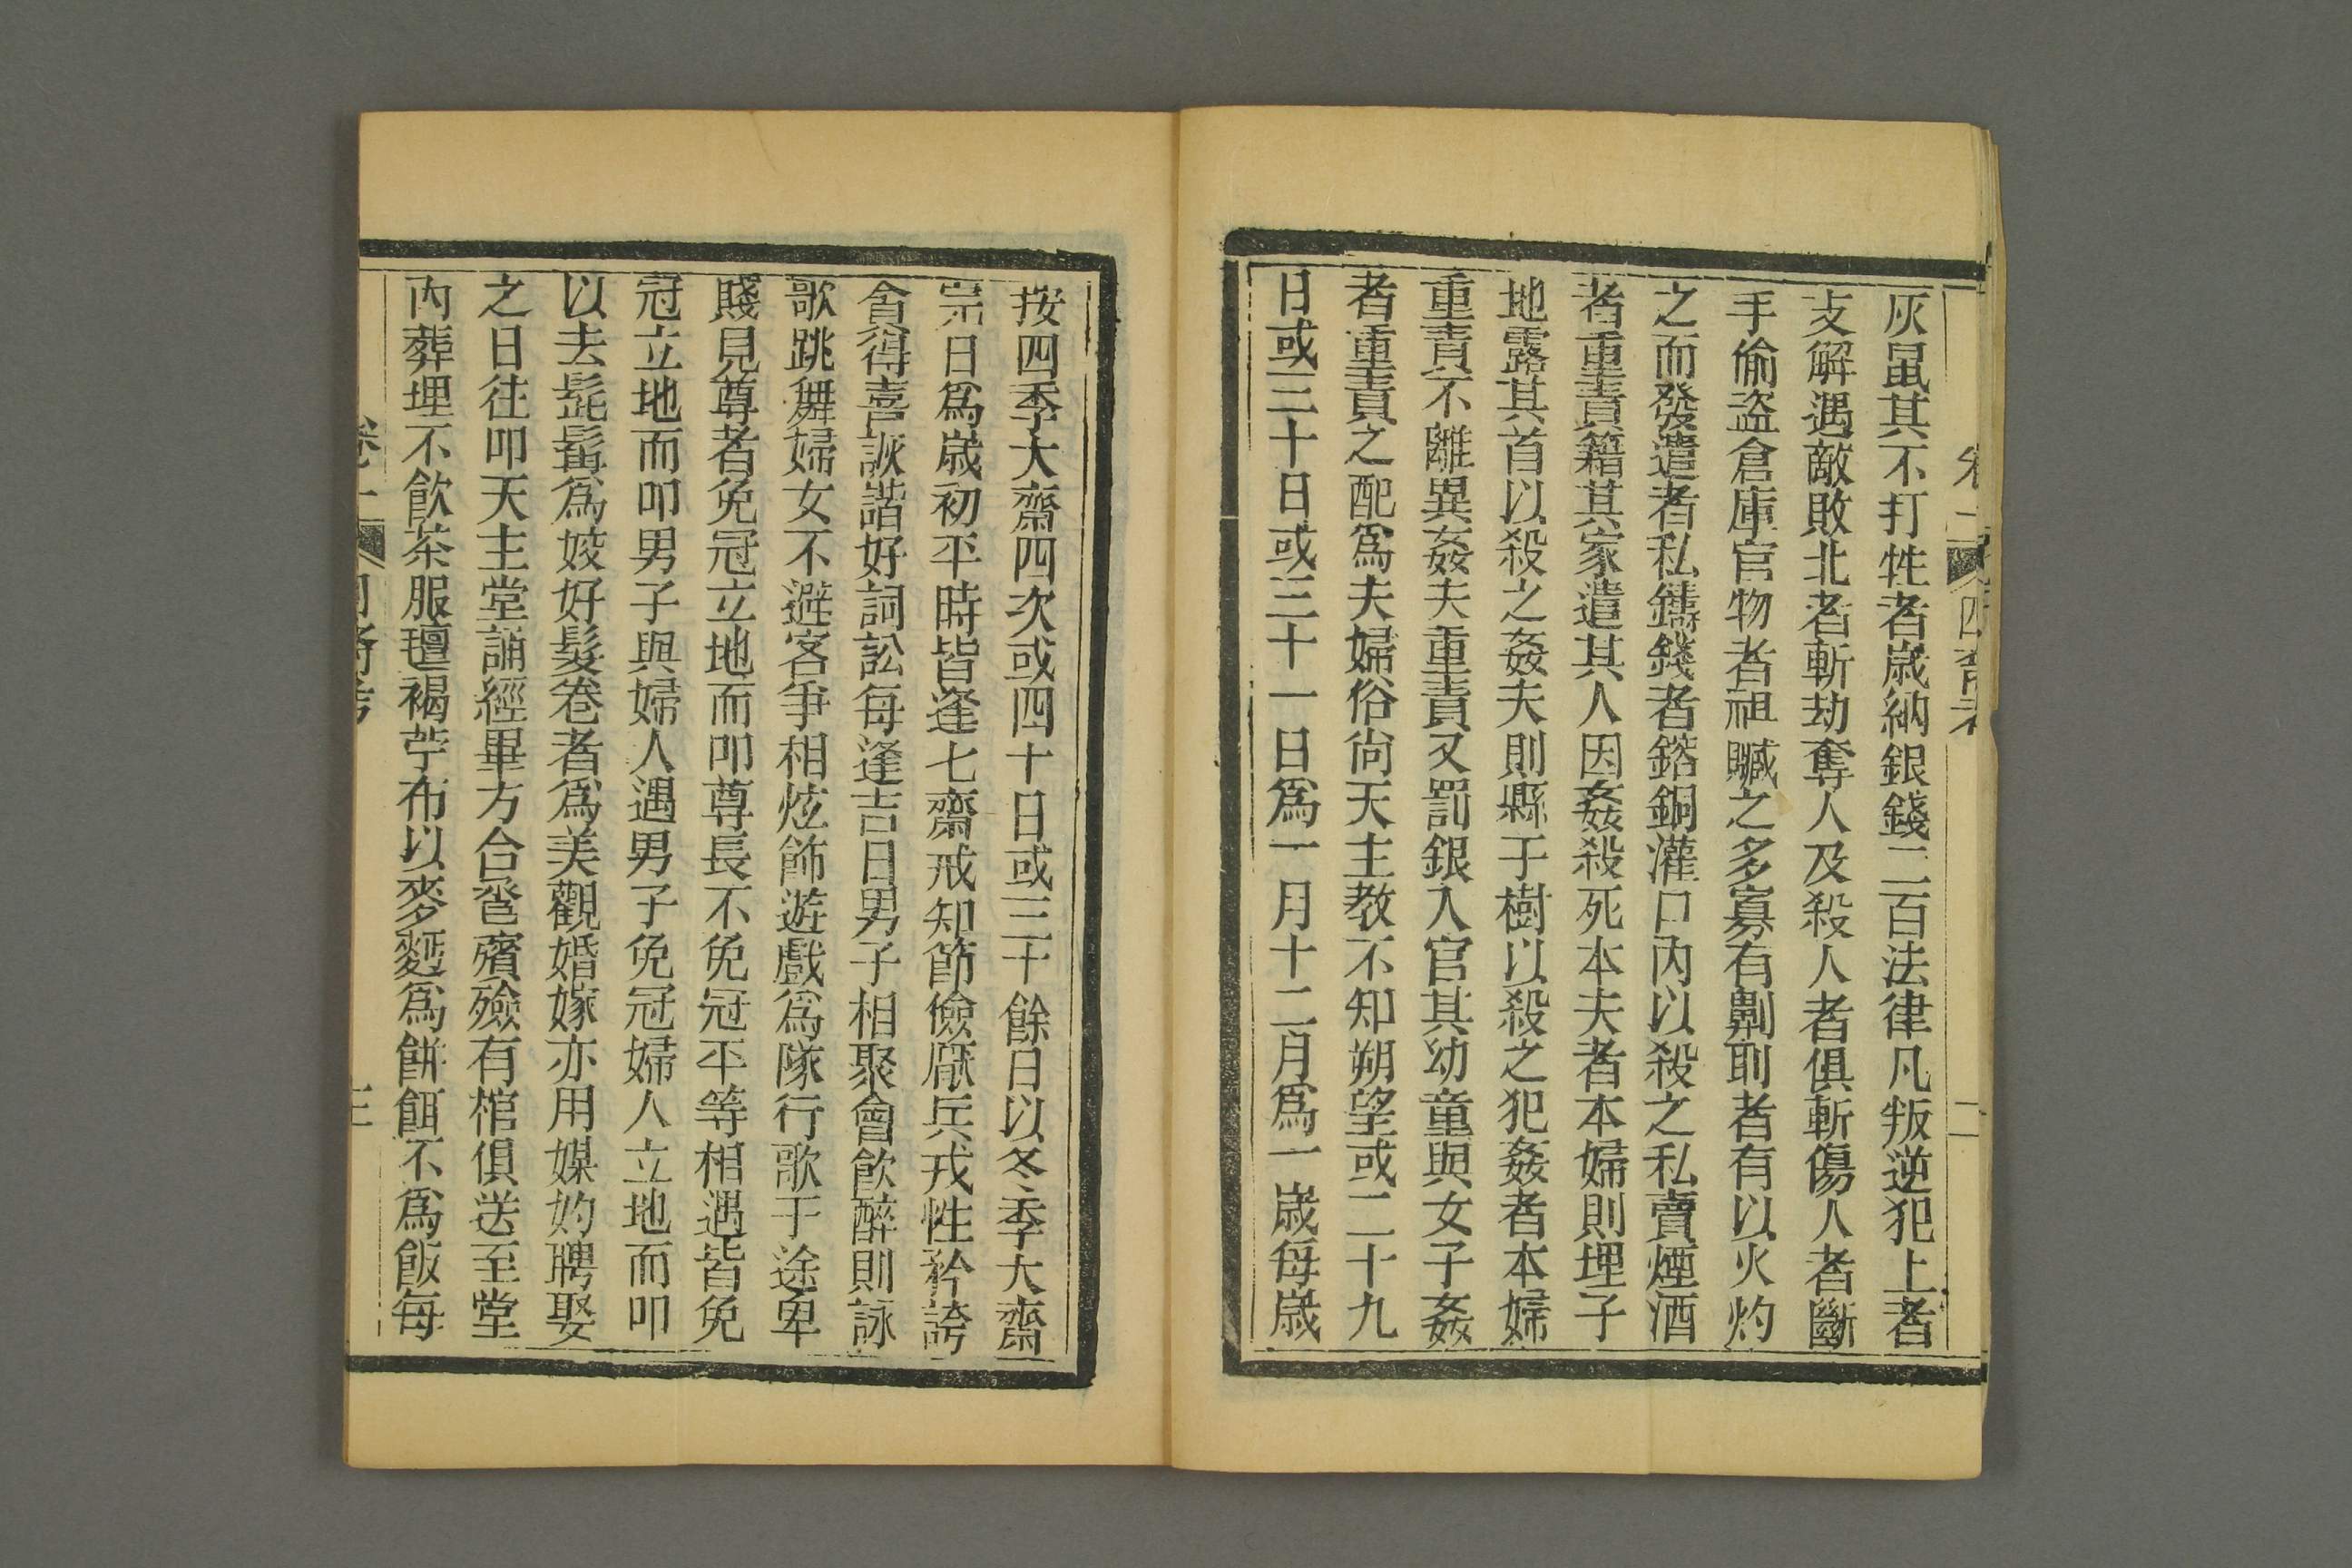 卷二 四裔考 二
灰鼠其不打牲者歲納銀錢二百法律凡叛逆犯上者
支解遇敵敗北者斬劫奪人及殺人者俱斬傷人者斷
手偷盗倉庫官物者視贓之多寡有劓刵者有以火灼
之而發遣者私鑄錢者鎔銅灌口內以殺之私賣煙酒
者重責籍其家遣其人因姦殺死本夫者本婦則埋于
地露其首以殺之姦夫則縣于樹以殺之犯姦者本婦
重責不離異姦夫重責又罰銀入官其幼童與女子姦
者重責之配爲夫婦俗尚天主教不知朔望或二十九
日或三十日或三十一日爲一月十二月爲一歲每歲
按四季大齋四次或四十日或三十餘日以冬季大齋
完日爲歲初平時皆逢七齋戒知節儉厭兵戎性矜誇
貪得喜詼諧好詞訟每逢吉日男子相聚會飲醉則詠
歌跳舞婦女不避客爭相炫飾遊戲爲隊行歌于途卑
賤見尊者免冠立地而叩尊長不免冠平等相遇皆免
冠立地而叩男子與婦人遇男子免冠婦人立地而叩
以去髭髯爲姣好髮卷者爲美觀婚嫁亦用媒妁聘娶
之日往叩天主堂誦經畢方合巹殯殮有棺俱送至堂
內葬埋不飲茶服氊褐苧布以麥麪爲餅餌不爲飯每
卷二 四裔考 三